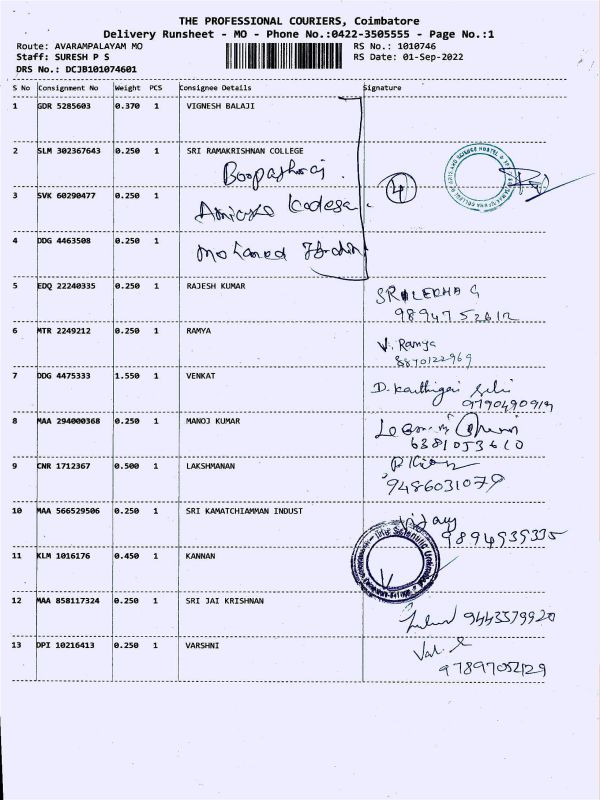 THE PROFESSIONAL COURIERS, Coimbatore
Delivery Runsheet - MO - Phone No.:0422-3505555 - Page No.:1
Route: AVARAMPALAYAM MO RS No.: 1010746
Staff: SURESH P S RS Date: 01-Sep-2022
DRS No.: DCJB101074601
S No Consignment No Weight PCS Consignee Details Signature
1 GDR 5285603 0.370 1 VIGNESH BALAJI
2 SLM 302367643 0.250 1 SRI RAMAKRISHNAN COLLEGE
4
3 SVK 60290477 0.250 1
4 DDG 4463508 0.250 1
5 EDQ 22240335 0.250 1 RAJESH KUMAR
SRILEKHA G
9894752612
6 MTR 2249212 0.250 1 RAMYA
V. Ramya
8870122969
7 DDG 4475333 1.550 1 VENKAT
D. Karthigai Selvi
8 MAA 294000368 0.250 1 MANOJ KUMAR
6381053610
9 CNR 1712367 0.500 1 LAKSHMANAN
9486031079
10 MAA 566529506 0.250 1 SRI KAMATCHIAMMAN INDUST
Vijay
9894939335
11 KLM 1016176 0.450 1 KANNAN
12 MAA 858117324 0.250 1 SRI JAI KRISHNAN
9443579920
13 DPI 10216413 0.250 1 VARSHNI
97897052129